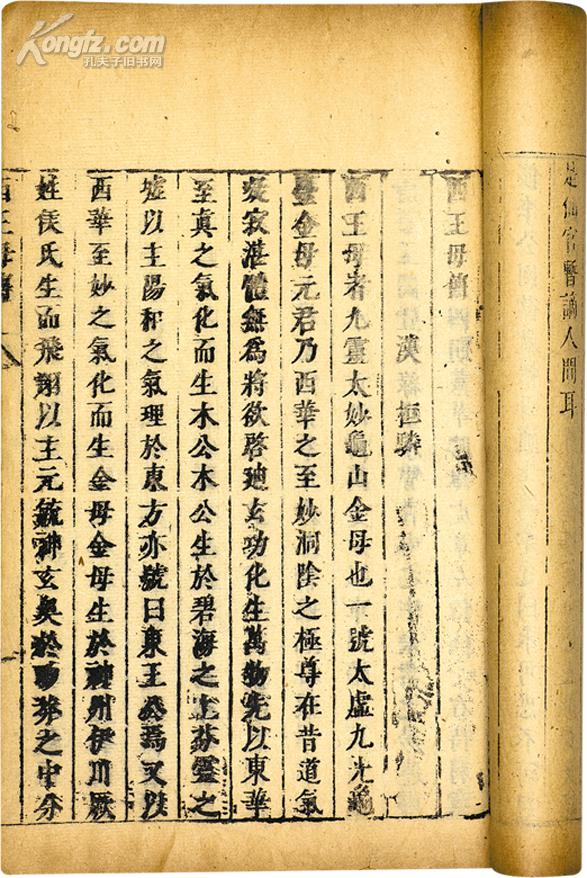 Kongfz.com
孔夫子旧书网
是仙官暫謫人間耳
西王母傳
漢 桓驎
西王母者九靈太妙龜山金母也一號太虛九光龜
臺金母元君乃西華之至妙洞陰之極尊在昔道氣
凝寂湛體無為將欲啓廸玄功化生萬物先以東華
至真之氣化而生木公木公生於碧海之上芬靈之
墟以主陽和之氣理於東方亦號曰東王公焉又以
西華至妙之氣化而生金母金母生於神州伊川厥
姓侯氏生而飛翔以主元毓神玄奧於眇莽之中分
西王母傳